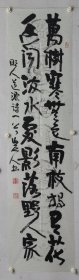 萬樹寒無色南枝獨有花
香聞流水處影落野人家